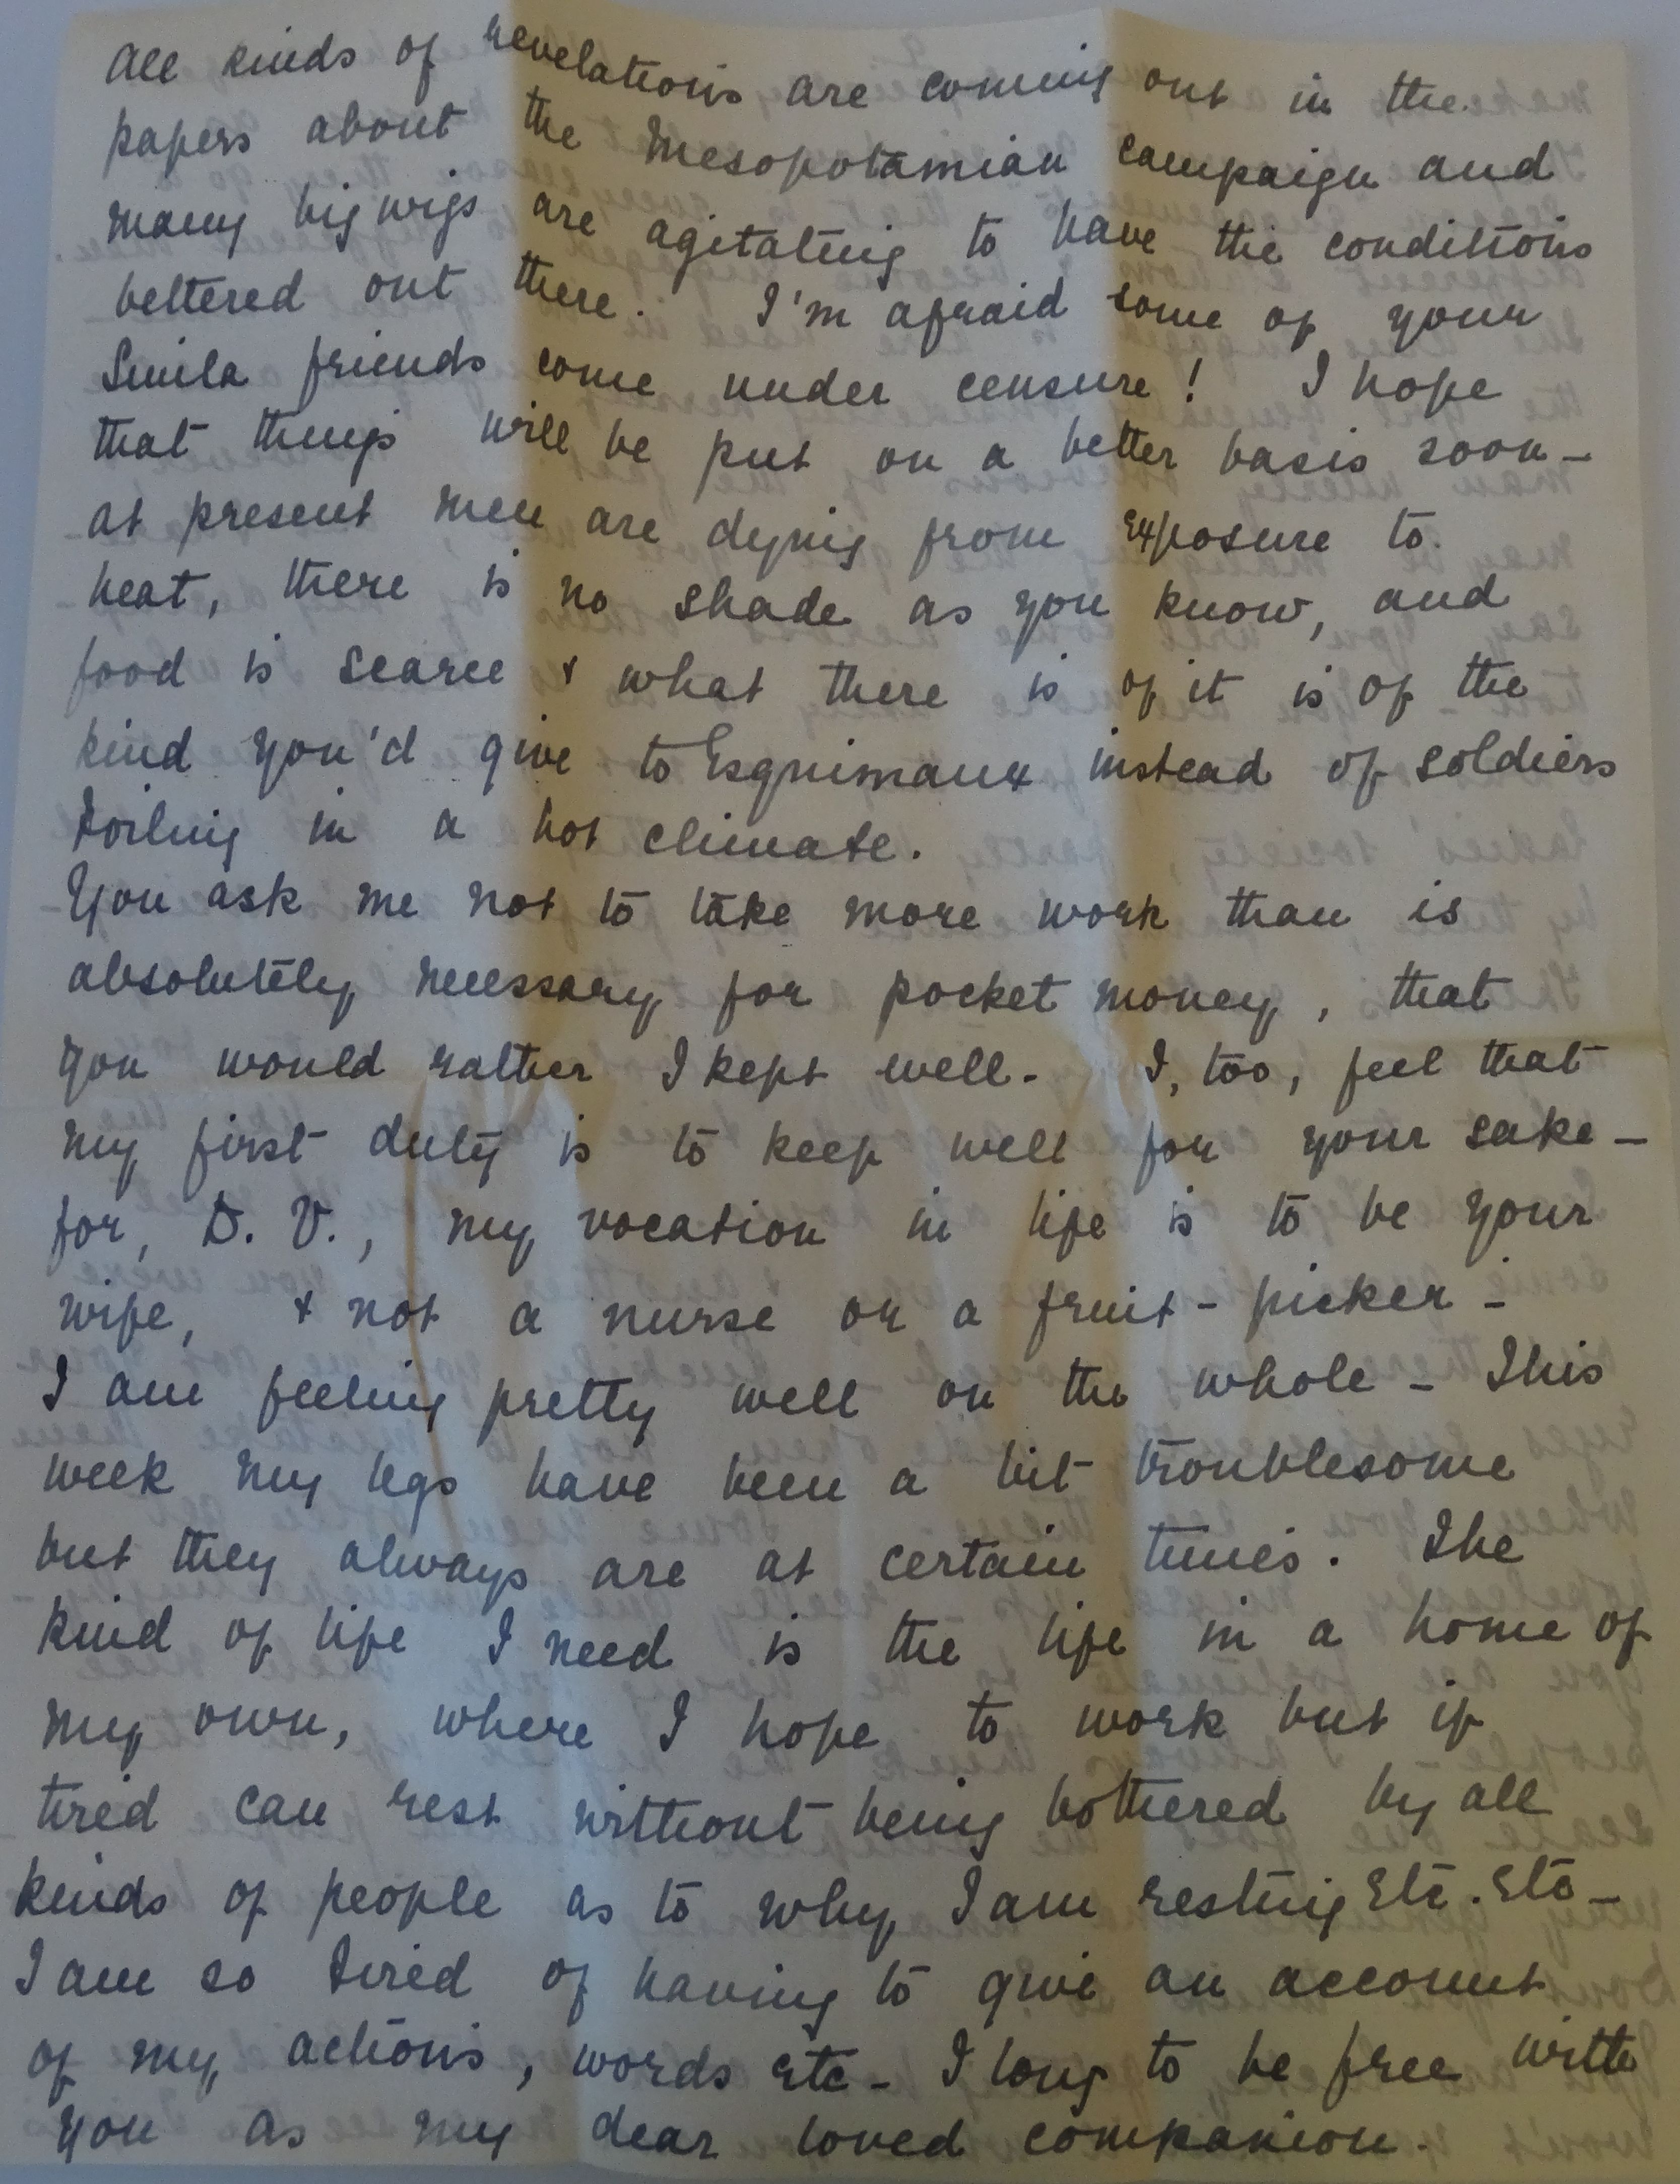 All kinds of revelations are coming out in the
papers about the Mesopotamian campaign and
many bigwigs are agitating to have the conditions
bettered out there. I'm afraid some of your
Simla friends come under censure! I hope
that things will be put on a better basis soon -
at present men are dying from exposure to
heat, there is no shade as you know, and
food is scarce & what there is of it is of the
kind you'd give to Esquimaux instead of soldiers
toiling in a hot climate.
You ask me not to take more work than is
absolutely necessary for pocket money, that
you would rather I kept well. I, too, feel that
my first duty is to keep well for your sake -
for, D. V., my vocation in life is to be your
wife, & not a nurse or a fruit-picker -
I am feeling pretty well on the whole - This
week my legs have been a bit troublesome
but they always are at certain times. The
kind of life I need is the life in a home of
my own, where I hope to work but if
tired can rest without being bothered by all
kinds of people as to why I am resting etc. etc -
I am so tired of having to give an account
of my actions, words etc - I long to be free with
you as my dear loved companion.